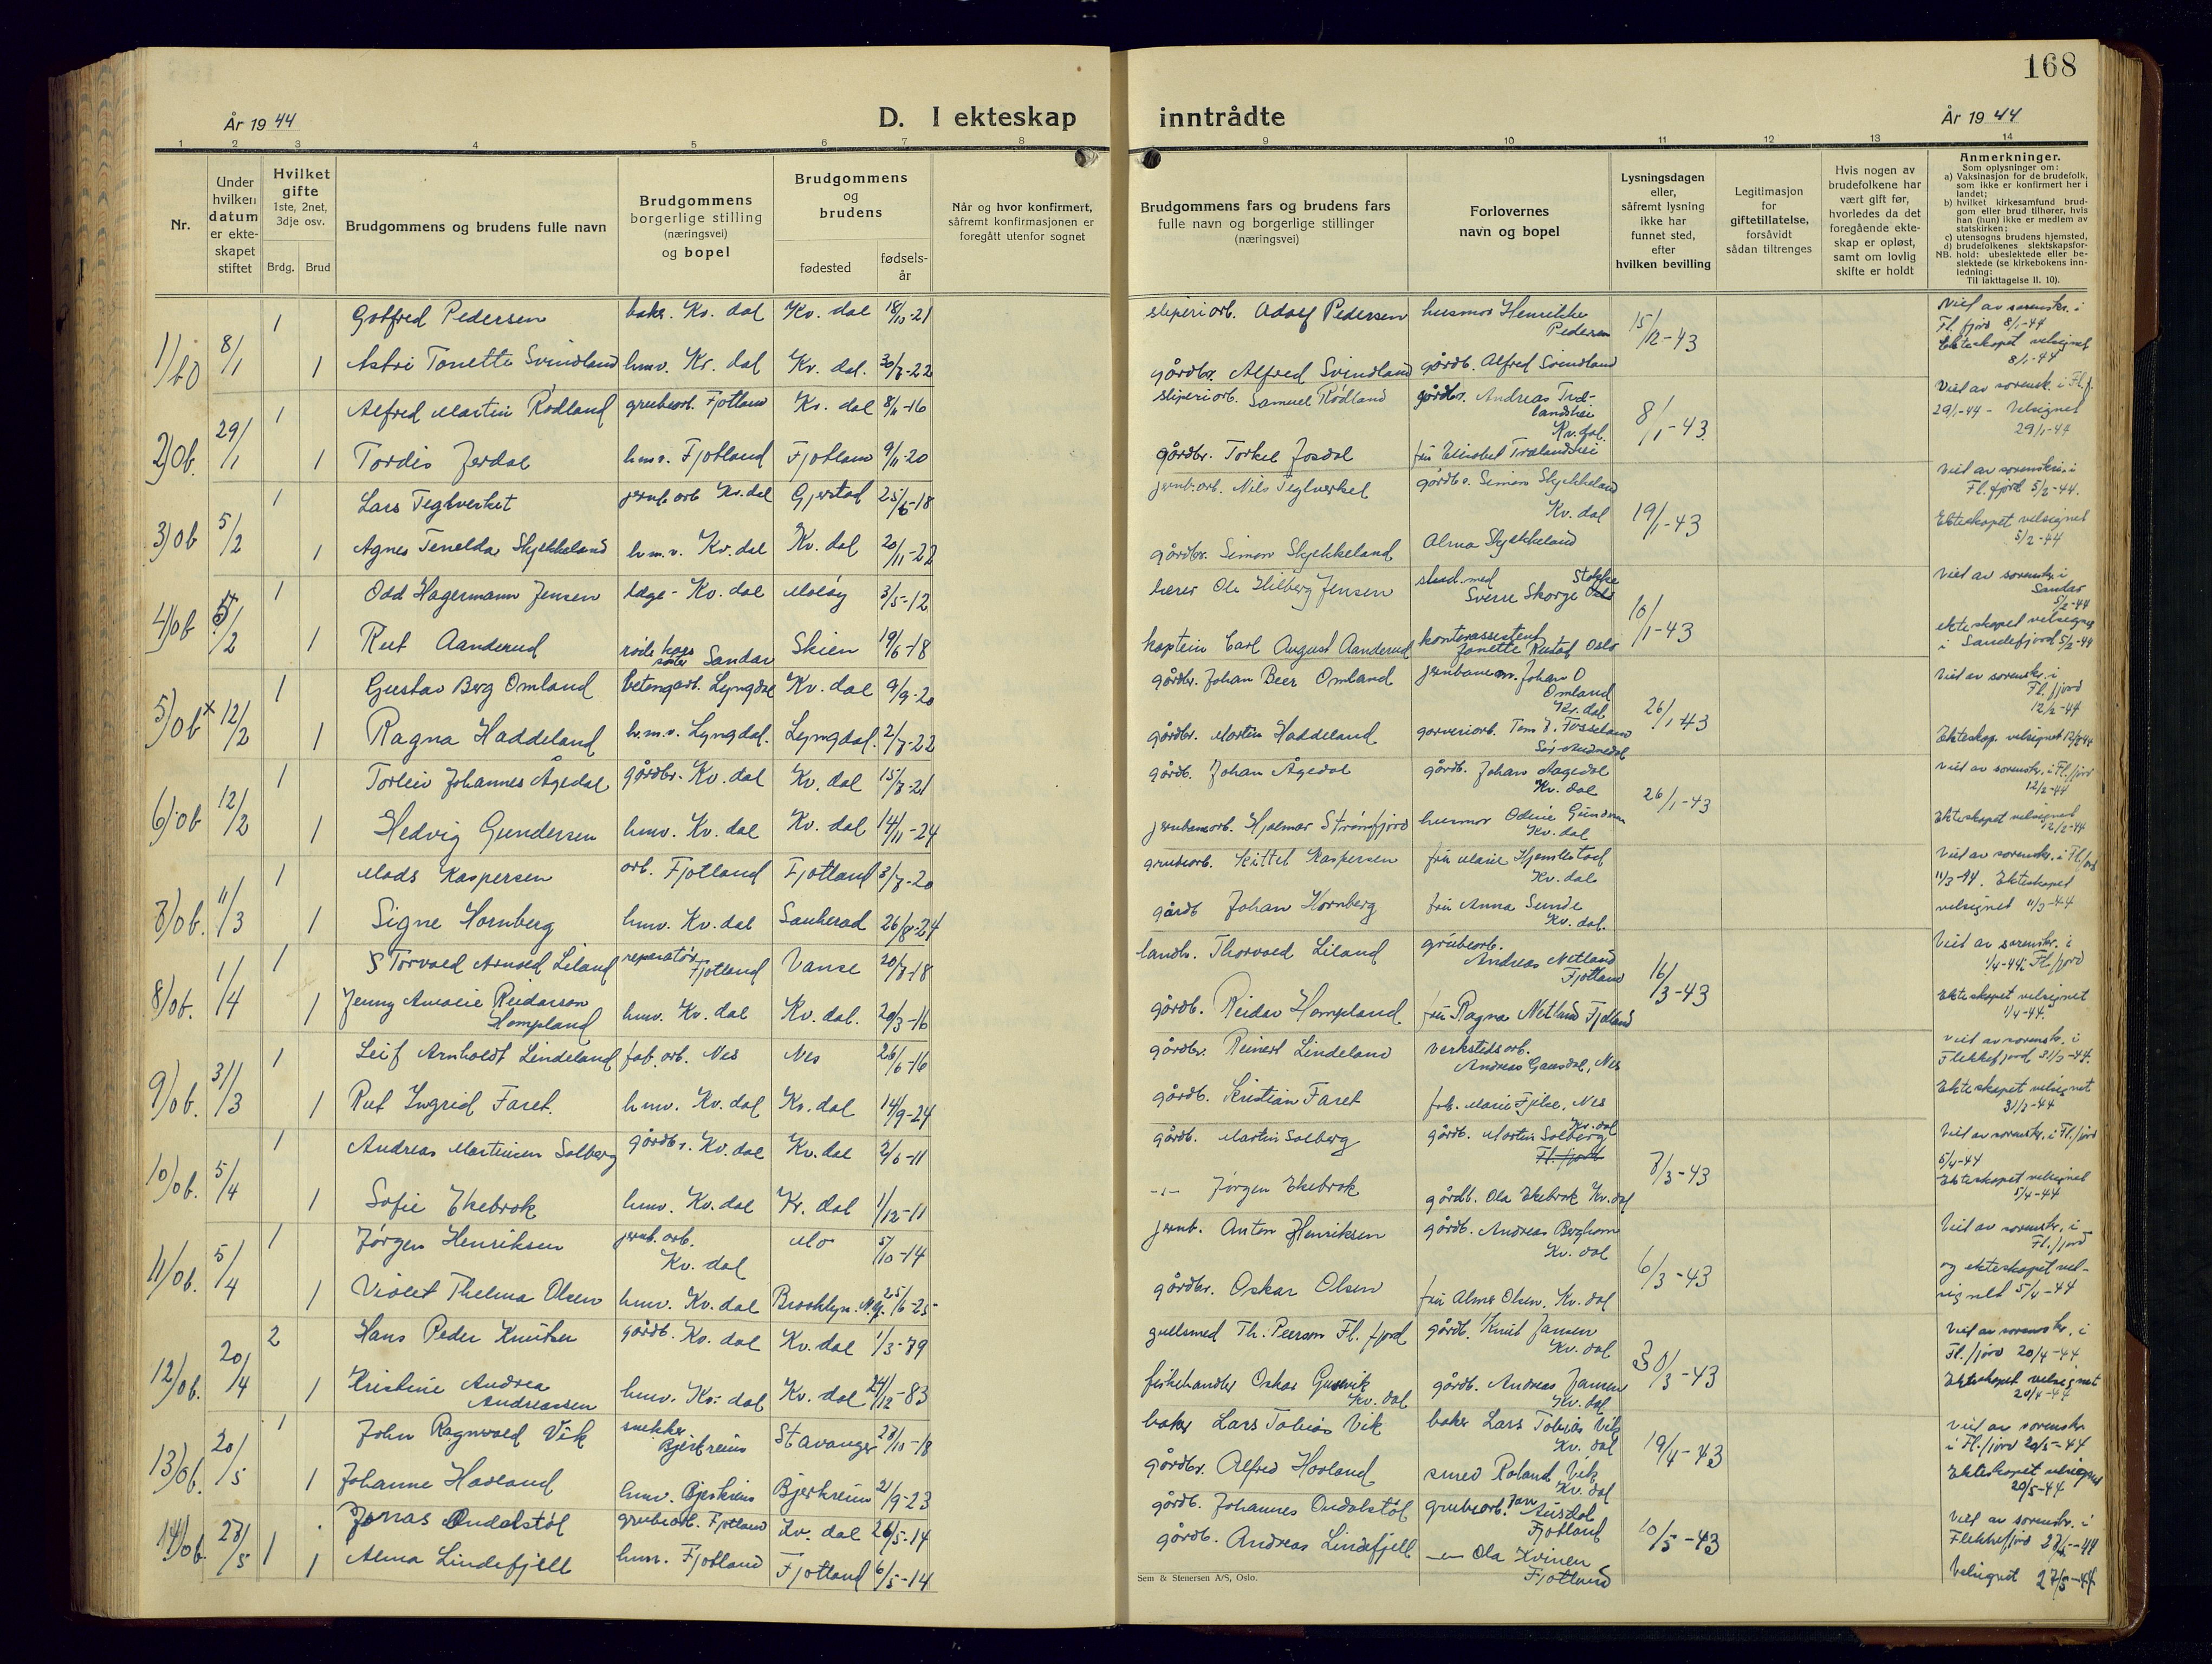 168
År 1944
D. I ekteskap inntrådte
År 1944
1 2 3 4 5 6 7 8 9 10 11 12 13 14
Nr.
Under hvilken datum er ekteskapet stiftet
Hvilket gifte 1ste, 2net, 3dje osv.
Brdg. Brud
Brudgommens og brudens fulle navn
Brudgommens borgerlige stilling (næringsvei) og bopel
Brudgommens og brudens
fødested
fødsels-år
Når og hvor konfirmert, såfremt konfirmasjonen er foregått utenfor sognet
Brudgommens fars og brudens fars fulle navn og borgerlige stillinger (næringsvei)
Forlovernes navn og bopel
Lysningsdagen eller, såfremt lysning ikke har funnet sted, efter hvilken bevilling
Legitimasjon for giftetillatelse, forsåvidt sådan tiltrenges
Hvis nogen av brudefolkene har vært gift før, hvorledes da det foregående ekteskap er opløst, samt om lovlig skifte er holdt
Anmerkninger.
Som oplysninger om:
a) Vaksinasjon for de brudefolk, som ikke er konfirmert her i landet;
b) hvilket kirkesamfund brudgom eller brud tilhører, hvis han (hun) ikke er medlem av statskirken;
c) utensogns brudens hjemsted,
d) brudefolkenes slektskapsforhold: ubeslektede eller beslektede (se kirkebokens innledning:
NB. Til iakttagelse II. 10).
1/60 8/1 1 Gotfred Pedersen baker. Kv. dal Kv. dal 18/10-21 sliperiarb. Adolf Pedersen husmor Henrikke Pedersen 15/12-43 Viet av sorenskr. i Fl. fjord 8/1-44
1 Astri Tonette Svindland hmv. Kv. dal Kv. dal. 30/7-22 gårdbr. Alfred Svindland gårdb. Alfred Svindland Ekteskapet velsignet 8/1-44
2)Ob. 29/1 1 Alfred Martin Rødland grubearb. Fjotland Kv. dal 8/11-16 sliperiarb. Samuel Rødland gårdbr. Andreas Trælandshei Kv. dal. 8/1-43 Viet av sorensk. i Fl.f. 29/1-44 - Velsignet 29/1-44
1 Tordis Jerdal hmv. Fjotland Fjotland 9/11-20 gårdbr. Torkel Josdal fru Elisabet Trælandshei
3)Ob 5/2 1 Lars Teglverket jernb. arb Kv. dal Gjerstad 25/6-18 jernb. arb. Nils Teglverket gårdbr. Simon Skjekkeland Kv. dal 19/1-43 Viet av sorenskr. i Fl. fjord 5/2-44.
1 Agnes Tenelda Skjekkeland h.m.v. Kv. dal Kv. dal 20/11-22 gårdbr. Simon Skjekkeland Alma Skjekkeland Ekteskapet velsignet 5/2-44
4)Ob 5/2 1 Odd Hagermann Jensen læge - Kv. dal Måløy 3/5-12 lærer Ole Hilberg Jensen stud. med Sverre Skorge Stokke 10/1-43 Viet av sorenskr. i Sandar 5/2-44
1 Rut Aanderud røde kors søster Sandar Skien 19/6-18 kaptein Carl August Aanderud kontorassistent Janette Rustad Oslo ekteskapet velsignet i Sandefjord 5/2-44
5)Ob x 12/2 1 Gustav Berg Omland betongarb. Lyngdal Kv. dal 9/9-20 gårdbr. Johan Beer Omland jernbanem. Johan O Omland Kv. dal 26/1-43 Viet av sorenskr. i Fl. fjord 12/2-44
1 Ragna Haddeland h.m.v. Lyngdal. Lyngdal. 2/7-22 gårdbr. Martin Haddeland garveriarb. Tom J. Fosseland Sør-Audnedal Ekteskap. velsignet 12/2-44
6)Ob 12/2 1 Torleiv Johannes Ågedal gårdbr. Kv. dal Kv. dal 15/7-21 gårdb. Johan Ågedal gårdb. Johan Aagedal Kv. dal 26/1-43 Viet av sorenskr. i Fl. fjord 12/2-44
1 Hedvig Gundersen hmv. Kv. dal Kv. dal 14/11-24 jernbanearb. Hjalmar Strømfjord husmor Odine Gundersen Kv. dal Ekteskapet velsignet 12/2-44
7)Ob. 11/3 1 Mads Kaspersen arb. Fjotland Fjotland 3/7-20 grubearb. Kittel Kaspersen fru Marie Hjemlestad Kv. dal. Viet av sorenskr. i Fl. fjord 11/3-44. Ekteskapet velsignet 11/3-44
1 Signe Hornberg hmv. Kv. dal Sauherad 26/8-24 gårdb Johan Hornberg fru Anna Sunde Kv. dal.
8)Ob. 1/4 1 S Torvald Arnold Liland reparatør Fjotland Vanse 20/7-18 landbr. Thorvald Liland grubearb. Andreas Netland Fjotland 16/3-43 Viet av sorenskr. i 1/4-44 i Fl. fjord
1 Jenny Amalie Reidarson Hompland hmv. Kv. dal Kv. dal. 20/3-16 gårdb. Reidar Hompland fru Ragna Netland Fjotland Ekteskapet velsignet 1/4-44.
9)Ob. 31/3 1 Leif Arnholdt Lindeland fab. arb. Nes Nes 26/6-16 gårdbr. Reinert Lindeland verkstedsarb. Andreas Gausdal, Nes Viet av sorenskr. i Flekkefjord 31/3-44.
1 Rut Ingrid Faret. hmv. Kv. dal Kv. dal 14/9-24 gårdb. Kristian Faret frk. Marie Fjelse, Nes Ekteskapet velsignet 31/3-44
10)Ob. 5/4 1 Andreas Martinsen Solberg gårdbr. Kv. dal Kv. dal 2/6-11 gårdb. Martin Solberg gårdb. Martin Solberg Kv. dal Fl. fjord 7/3-43 Viet av sorenskr. i Fl. fjord 5/4-44
1 Sofie Ekebrok hmv. Kv. dal Kv. dal 1/12-11 -"- Jørgen Ekebrok gårdb. Ola Ekebrok Kv. dal Ekteskapet velsignet 5/4-44
11)Ob. 5/4 1 Jørgen Henriksen jernb. arb. Kv. dal Mo 5/10-14 jernb. Anton Henriksen gårdb. Andreas Berghom Kv. dal 6/3-43 Viet av sorenskr. i Fl. fjord
1 Violet Thelma Olsen hmv. Kv. dal Brooklyn. N.Y. 25/6-25 gårdbr. Oskar Olsen fru Alma Olsen. Kv. dal og ekteskapet velsignet 5/4-44
12)Ob. 20/4 2 Hans Peder Knutsen gårdb. Kv. dal Kv. dal 1/3-79 gullsmed Th. Peerson Fl. fjord gårdb. Knut Jansen Kv. dal 30/3-43 Viet av sorenskr. i Fl. fjord 20/4-44
1 Kristine Andrea Andreassen hmv. Kv. dal Kv. dal 24/12-83 fiskehandler Oskar Gusevik Kv. dal gårdb. Andreas Jansen Kv. dal Ekteskapet velsignet 20/4-44
13)Ob. 20/5 1 John Ragnvald Vik snekker Bjerkreim Stavanger 28/10-18 baker Lars Tobias Vik baker Lars Tobias Vik Kv. dal 19/4-43 Viet av sorenskr. i Fl. fjord 20/5-44
1 Johanne Havland hmv. Bjerkreim Bjerkreim 21/9-23 gårdbr. Alfred Hovland smed Roland Vik Kv. dal Ekteskapet velsignet 20/5-44
14)Ob. 27/5 1 Jonas Ondalstøl grubearb. Fjotland Kv. dal 26/5-14 gårdb. Johannes Ondalstøl grubearb. Jan Austdal Fjotland 10/5-43 Viet av sorenskr. i Flekkefjord 27/5-44
1 Alma Lindefjell hmv. Fjotland Fjotland 6/5-14 gårdb. Andreas Lindefjell -"- Ola Kvinen Fjotland Velsignet 27/5-44
Sem & Stenersen A/S, Oslo.